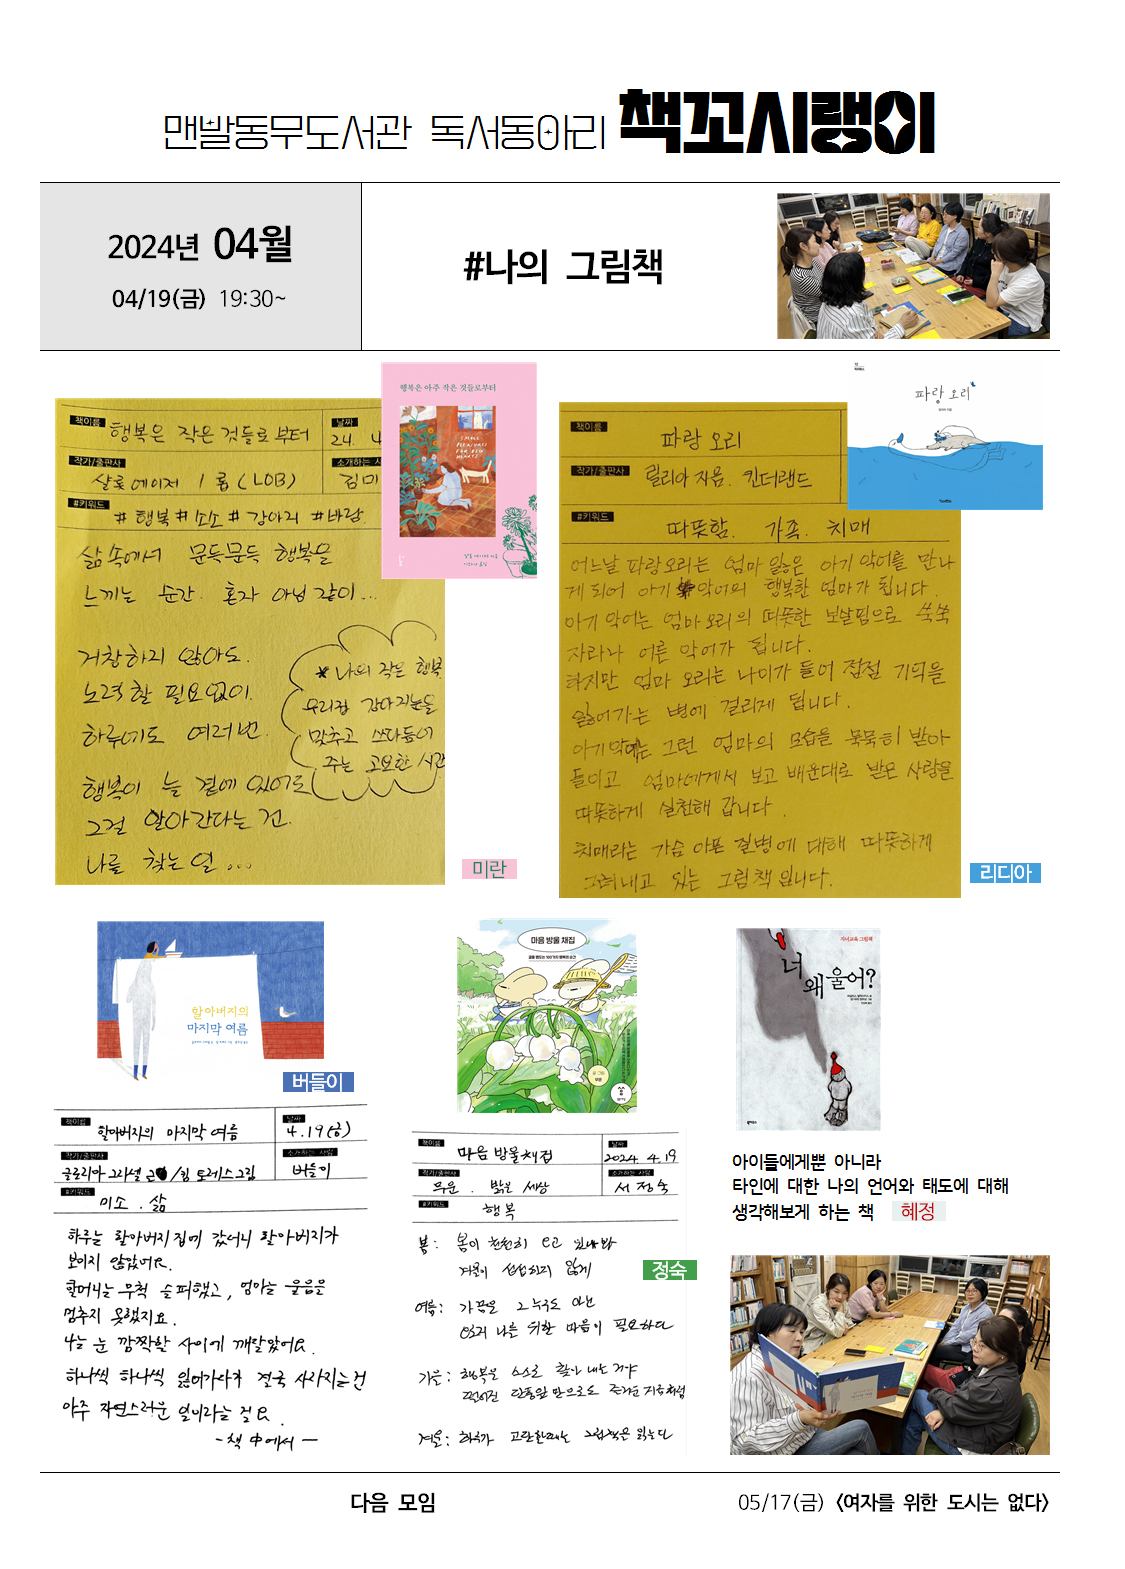 맨발동무도서관 독서동아리 책꼬시랭이
2024년 04월
04/19(금) 19:30~
#나의 그림책
책이름 행복은 작은 것들로부터
날짜 24. 4
작가/출판사 샬롯 에이저 / 롭(LOB)
소개하는 사
김미
#키워드
#행복 #소소 #강아지 #바람
삶 속에서 문득문득 행복을
느끼는 순간. 혼자 아님 같이...
거창하지 않아도.
노력할 필요없이.
하루에도 여러번.
행복이 늘 곁에 있어도
그걸 알아간다는 건.
나를 찾는 일 ...
* 나의 작은 행복
우리집 강아지눈을
맞추고 쓰다듬어
주는 고요한 시간
행복은 아주 작은 것들로부터
SMALL
PLEASURES
FOR BUSY
HEARTS
미란
책이름 파랑 오리
작가/출판사 릴리아 지음. 킨더랜드
#키워드
따뜻함. 가족. 치매
어느날 파랑오리는 엄마 잃은 아기 악어를 만나
게 되어 아기 악어의 행복한 엄마가 됩니다.
아기 악어는 엄마 오리의 따뜻한 보살핌으로 쑥쑥
자라나 어른 악어가 됩니다.
하지만 엄마 오리는 나이가 들어 점점 기억을
잃어가는 병에 걸리게 됩니다.
아기악어는 그런 엄마의 모습을 묵묵히 받아
들이고 엄마에게서 보고 배운대로 받은 사랑을
따뜻하게 실천해 갑니다.
치매라는 가슴 아픈 질병에 대해 따뜻하게
그려내고 있는 그림책 입니다.
파랑 오리
리디아
할아버지의
마지막 여름
버들이
책이름 할아버지의 마지막 여름
날짜 4.19(금)
작가/출판사
글로리아 그라넬 글 / 킴 토레스 그림
소개하는 사람
버들이
#키워드 미소. 삶
하루는 할아버지 집에 갔더니 할아버지가
보이지 않았어요.
할머니는 무척 슬퍼했고, 엄마는 울음을
멈추지 못했지요.
나는 눈 깜짝할 사이에 깨달았어요.
하나씩 하나씩 잃어가다가 결국 사라지는건
아주 자연스러운 일이라는 걸요.
- 책 中에서 -
마음 방울 채집
무운
책이름 마음 방울채집
날짜
2024. 4.19
작가/출판사
무운. 밝은 세상
소개하는 사람
서정숙
#키워드 행복
봄: 봄이 천천히 오고 있나봐
겨울이 섭섭하지 않게
여름: 가끔은 그 누구도 아닌
오직 나를 위한 마음이 필요하다
가을: 행복은 스스로 찾아 내는 거야
떨어진 단풍잎 만으로도 즐거운 지금처럼
겨울: 하루가 고단한때는 그림책을 읽는다
정숙
자녀교육 그림책
너
왜 울어?
아이들에게뿐 아니라
타인에 대한 나의 언어와 태도에 대해
생각해보게 하는 책 혜정
다음 모임
05/17(금) <여자를 위한 도시는 없다>